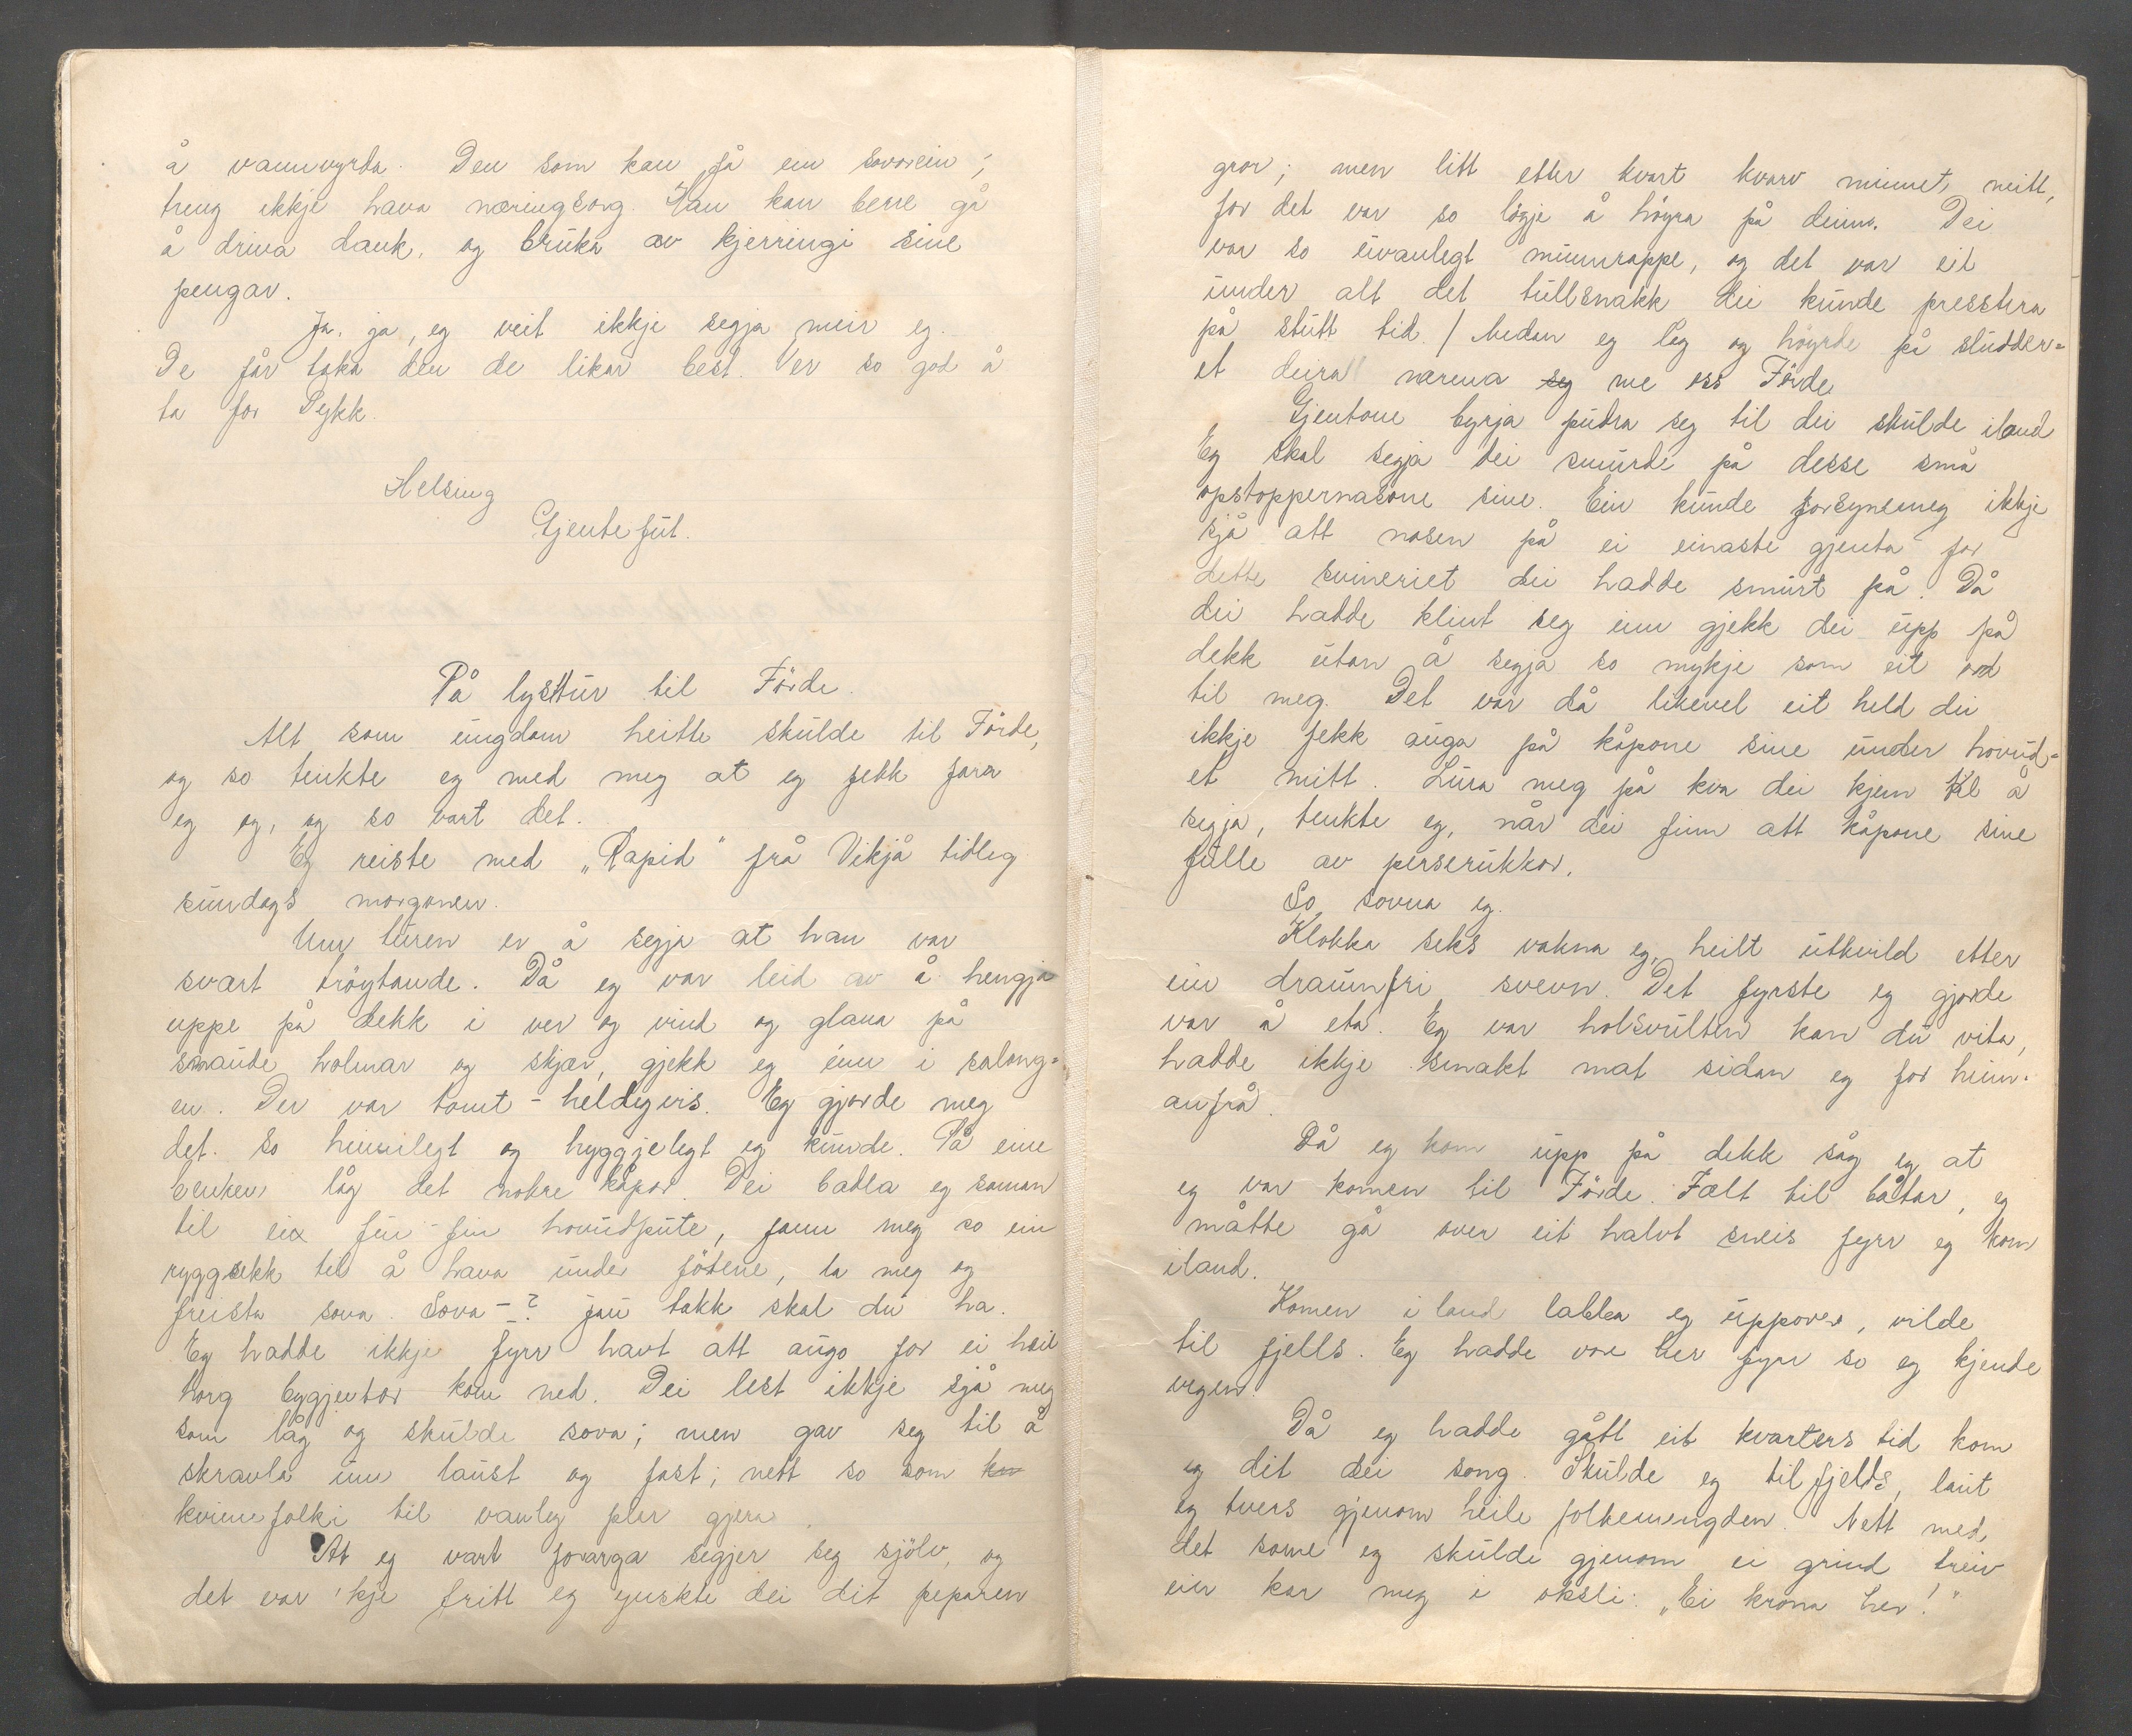 å vannvyrda. Den som kan få ein sovorein;
treng ikkje hava næringsorg. Han kan berre gå
å driva dank, og bruka av kjerringi sine
pengar.
Ja, ja, eg veit ikkje segja meir eg.
De får taka den de likar best. Ver so god å
ta for Dykk.
Helsing
Gjentefut.
På lysttur til Förde.
Alt som ungdom heitte skulde til Förde,
og so tenkte eg med meg at eg fekk fara
eg og, og so vart det.
Eg reiste med „Rapid" frå Vikjå tidleg
sundags morgonen.
Um turen er å segja at han var
svært tröytande. Då eg var leid av å hengja
uppe på dekk i ver og vind og glana på
snaude holmar og skjær, gjekk eg inn i salong-
en. Der var tomt - heldigvis. Eg gjorde meg
det so heimilegt og hyggjelegt eg kunde. På eine
benken låg det nokre kåpor. Dei balla eg saman
til ei fin fin hovudpute, fann meg so ein
ryggsekk til å hava under fötene, la meg og
freista sova. Sova -? jau takk skal du ha.
Eg hadde ikkje fyrr havt att augo for ei heil
horg bygjentor kom ned. Dei lest ikkje sjå meg
som låg og skulde sova; men gav seg til å
skravla um laust og fast; nett so som kv
kvinnfolki til vanleg plar gjera.
At eg vart forarga segjer seg sjölv, og
det var 'kje fritt eg ynskte dei dit peparen
gror; men litt etter kvart kvarv sinnet mitt,
for det var so lögje å höyra på deim. Dei
var so uvanlegt munnrappe, og det var eit
under alt det tullsnakk dei kunde presstera
på stutt tid. / Medan eg låg og höyrde på sludder-
et deira nærma seg me oss Förde
Gjentone byrja pudra seg til dei skulde iland
Eg skal segja dei smurde på desse små
opstoppernasone sine. Ein kunde forsynemeg ikkje
sjå att nasen på ei einaste gjenta for
dette svineriet dei hadde smurt på. Då
dei hadde klint seg inn gjekk dei upp på
dekk utan å segja so mykje som eit ord
til meg. Det var då likevel eit held dei
ikkje fekk auga på kåpone sine under hovud-
et mitt. Lura meg på kva dei kjem til å
segja, tenkte eg, når dei finn att kåpone sine
fulle av perserukkor.
So sovna eg.
Klokka seks vakna eg, heilt utkvild etter
ein draumfri svevn. Det fyrste eg gjorde
var å eta. Eg var holsvulten kan du vita,
hadde ikkje smakt mat sidan eg for heim-
anfrå.
Då eg kom upp på dekk såg eg at
eg var komen til Förde. Fælt til båtar, eg
måtte gå over eit halvt sneis fyrr eg kom
iland.
Komen i land labba eg uppover, vilde
til fjells. Eg hadde vore her fyrr so eg kjende
vegen.
Då eg hadde gått eit kvarters tid kom
eg dit dei song. Skulde eg til fjells, laut
eg tvers gjenom heile folkemengden. Nett med
det same eg skulde gjenom ei grind treiv
ein kar meg i oksli: „Ei krona her!"